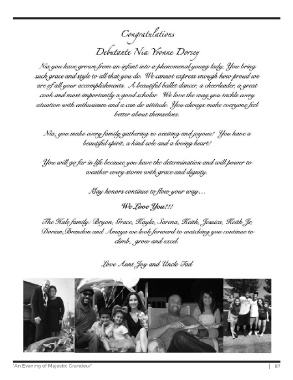 Congratulations
Debutante Nia Yvonne Dorsey
Nia you have grown from an infant into a phenomenal young lady. You bring
such grace and style to all that you do. We cannot express enough how proud we
are of all your accomplishments. A beautiful ballet dancer, a cheerleader, a great
cook and most importantly a good scholar. We love the way you tackle every
situation with enthusiasm and a can do attitude. You always make everyone feel
better about themselves.
Nia, you make every family gathering so exciting and joyous! You have a
beautiful spirit, a kind soul and a loving heart!
You will go far in life because you have the determination and will power to
weather every storm with grace and dignity.
May honors continue to flow your way...
We Love You!!!
The Hale family: Bryon, Grace, Kayla, Sarena, Keith, Jessica, Keith Jr,
Dorian, Brandon and Amaya we look forward to watching you continue to
climb, grow and excel.
Love Aunt Joy and Uncle Tad
"An Evening of Majestic Grandeur"
| 87